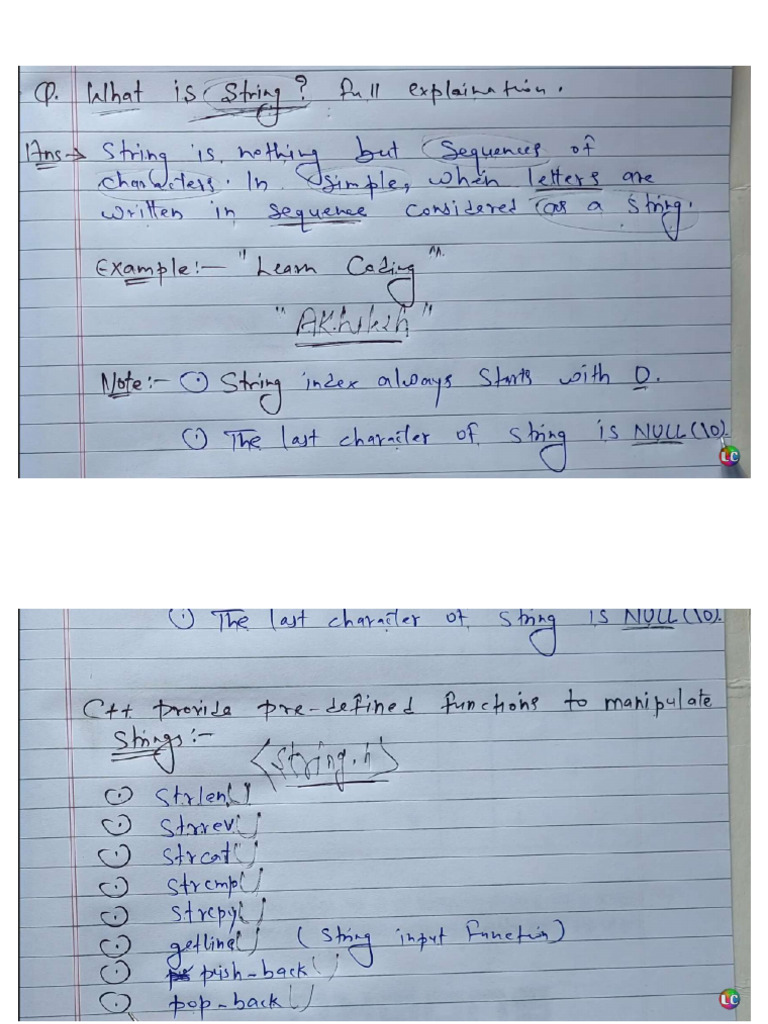 Q. What is String? full explaination.
Ans → String is nothing but sequences of
characters. In simple, when letters are
written in sequence considered as a string.
Example:- "Learn Coding".
"Akhilesh"
Note:- ⊙ String index always starts with 0.
⊙ The last character of string is NULL(\0).
LC
⊙ The last character of string is NULL(\0).
C++ provide pre-defined functions to manipulate
strings:-
<string.h>
⊙ strlen()
⊙ strrev()
⊙ strcat()
⊙ strcmp()
⊙ strcpy()
⊙ getline() (string input function)
⊙ push-back()
⊙ pop-back()
LC